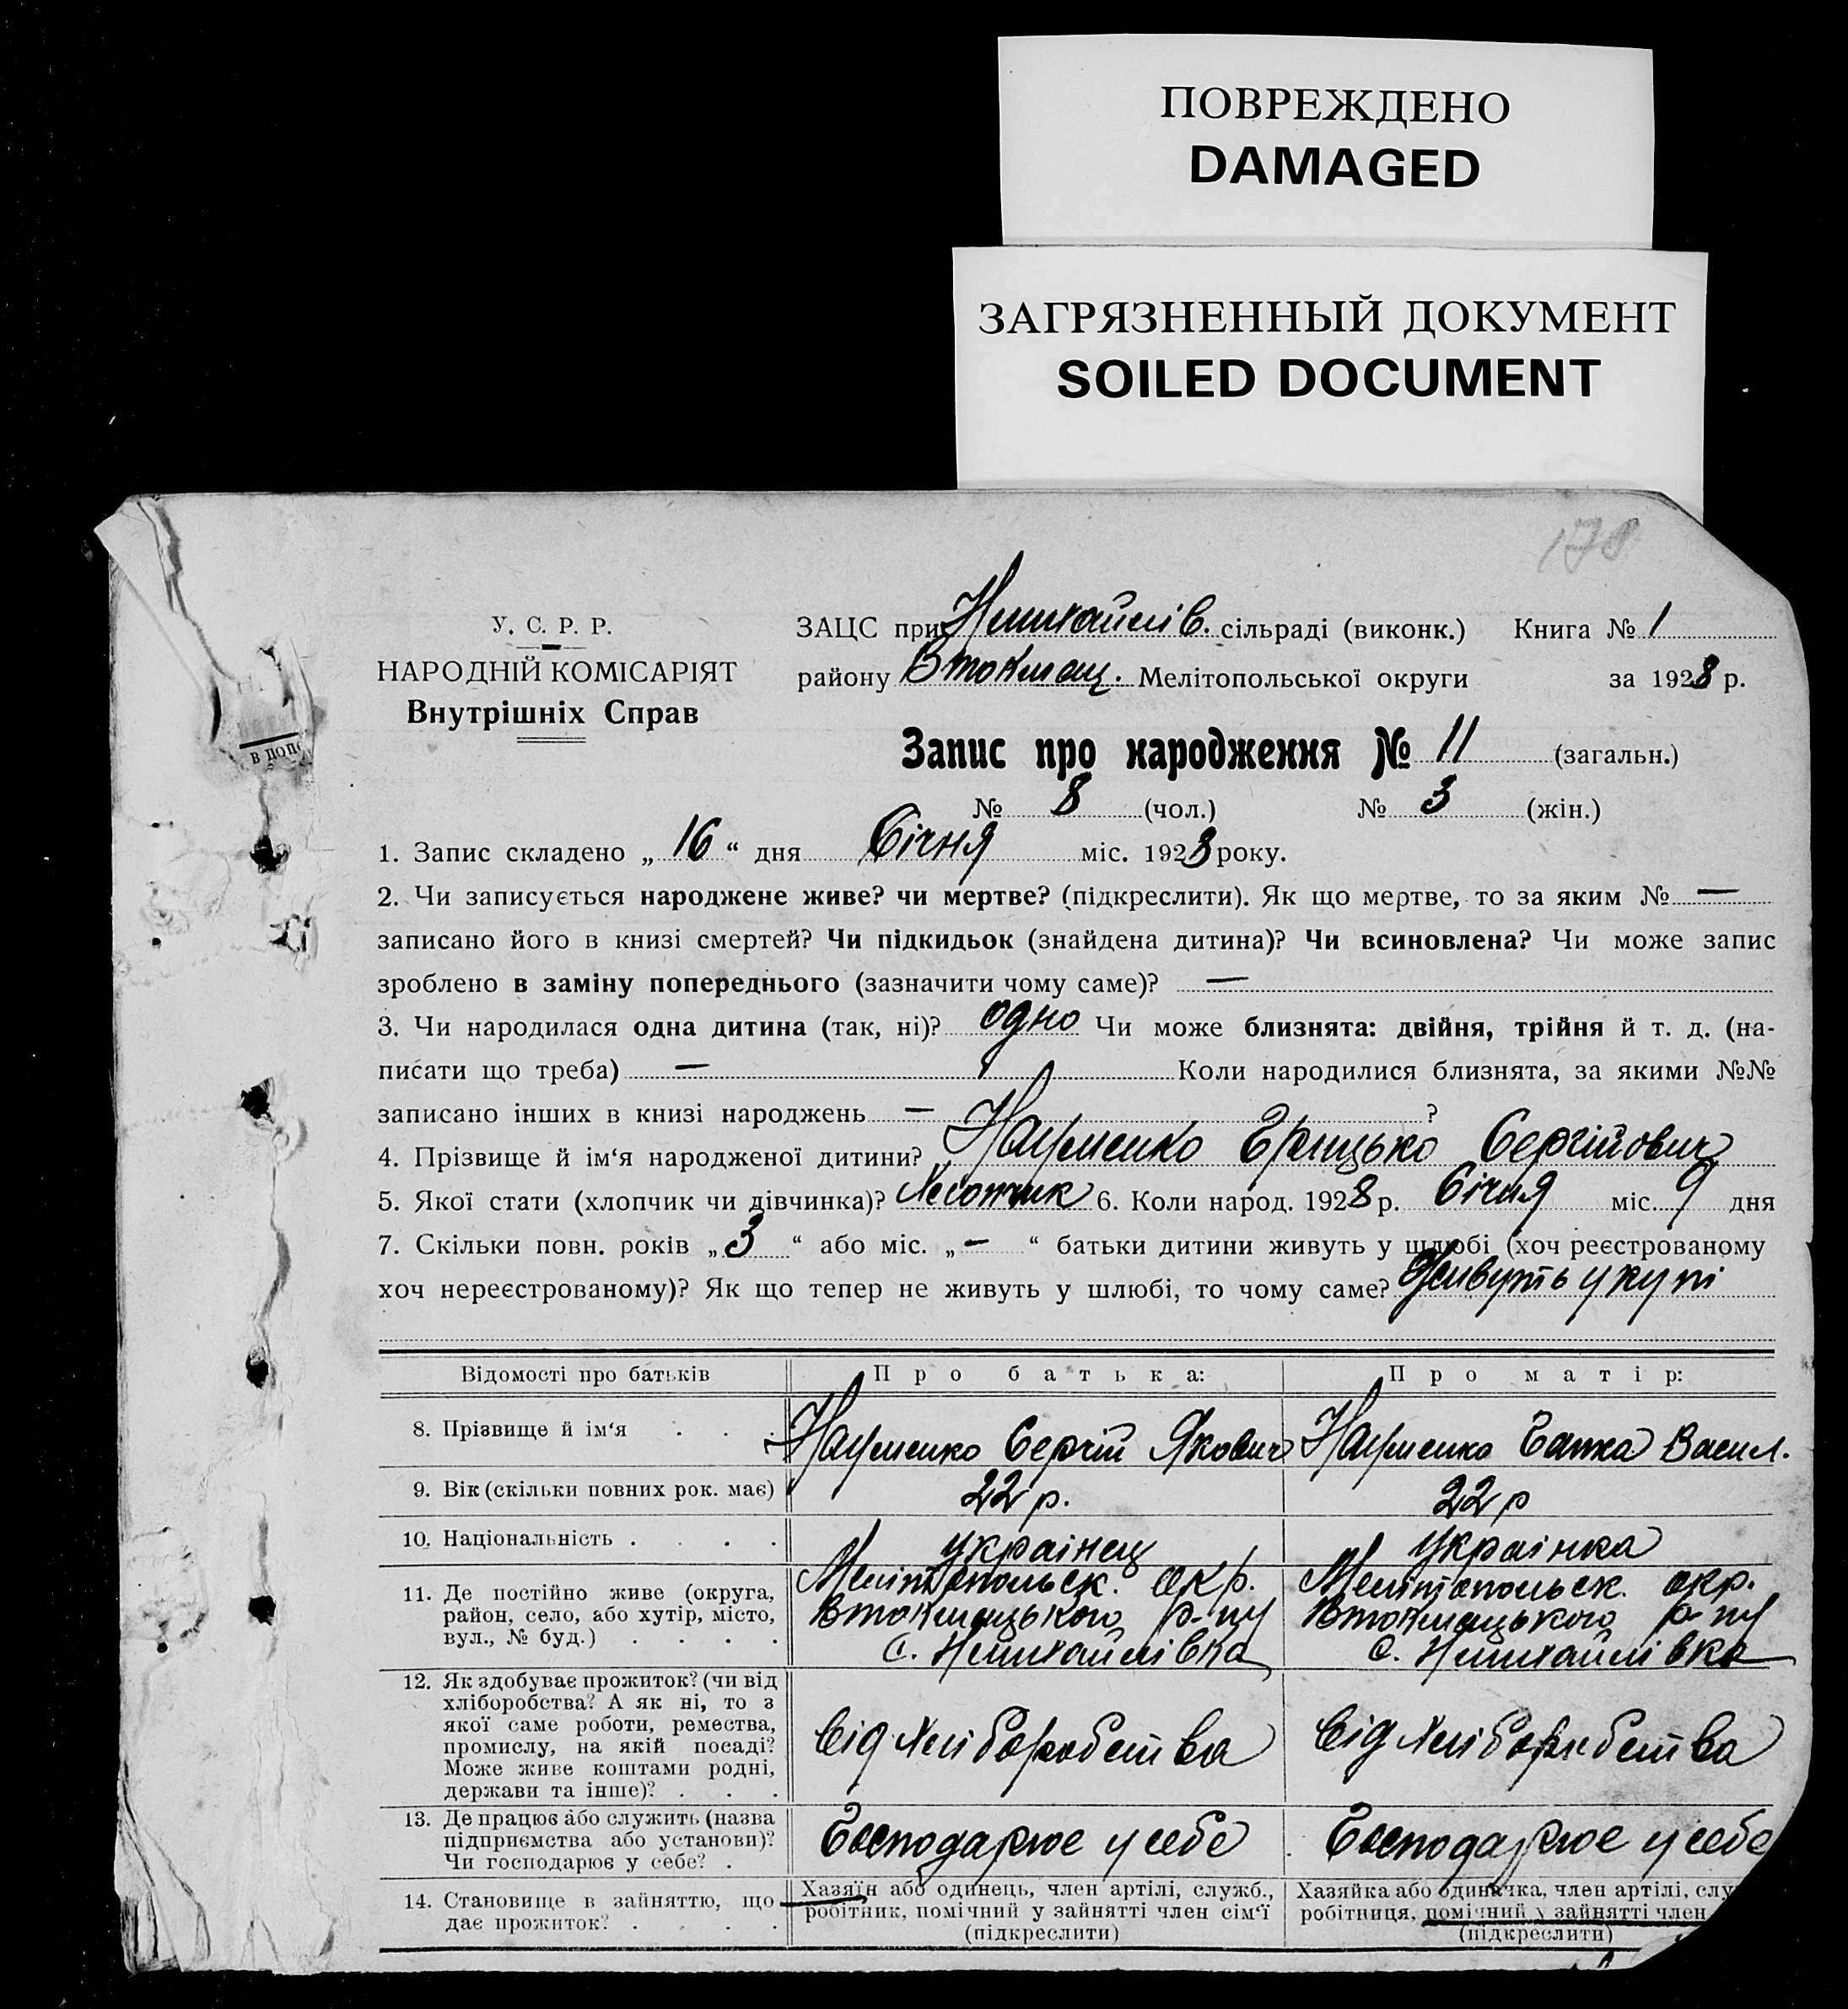 ПОВРЕЖДЕНО
DAMAGED
ЗАГРЯЗНЕННЫЙ ДОКУМЕНТ
SOILED DOCUMENT
178
У. С. Р. Р.
НАРОДНІЙ КОМІСАРІЯТ
Внутрішніх Справ
в допо
ЗАЦС при Нмихайлів. сільраді (виконк.) Книга № 1
району Втокмац. Мелітопольської округи за 1928 р.
Запис про народження № 11 (загальн.)
№ 8 (чол.) № 3 (жін.)
1. Запис складено „ 16 “ дня Січня міс. 1928 року.
2. Чи записується народжене живе? чи мертве? (підкреслити). Як що мертве, то за яким № —
записано його в книзі смертей? Чи підкидьок (знайдена дитина)? Чи всиновлена? Чи може запис
зроблено в заміну попереднього (зазначити чому саме)? —
3. Чи народилася одна дитина (так, ні)? одно Чи може близнята: двійня, трійня й т. д. (на-
писати що треба) — Коли народилися близнята, за якими №№
записано інших в книзі народжень — ?
4. Прізвище й ім‘я народженої дитини? Науменко Грицько Сергійович
5. Якої стати (хлопчик чи дівчинка)? Хлопчик 6. Коли народ. 1928 р. Січня міс. 9 дня
7. Скільки повн. років „ 3 “ або міс. „ — “ батьки дитини живуть у шлюбі (хоч реєстрованому
хоч нереєстрованому)? Як що тепер не живуть у шлюбі, то чому саме? Живуть укупі
Відомості про батьків Про батька: Про матір:
8. Прізвище й ім‘я . . . Науменко Сергій Якович Науменко Гапка Васил.
9. Вік (скільки повних рок. має) 22 р. 22 р
10. Національність . . . . українец українка
11. Де постійно живе (округа, Мелітопольск. окр. Мелітопольск. окр.
район, село, або хутір, місто, Втокмацького р-ну Втокмацького р-ну
вул., № буд.) . . . . с. Нмихайлівка с. Нмихайлівка
12. Як здобуває прожиток? (чи від
хліборобства? А як ні, то з
якої саме роботи, ремества,
промислу, на якій посаді?
Може живе коштами родні,
держави та інше)? . . .
Від хліборобства Від хліборобства
13. Де працює або служить (назва
підприємства або установи)?
Чи господарює у себе? .
Господарює у себе Господарює у себе
14. Становище в зайняттю, що
дає прожиток? . . . .
Хазяїн або одинець, член артілі, служб.,
робітник, помічний у зайнятті член сім‘ї
(підкреслити)
Хазяйка або одиначка, член артілі, слу
робітниця, помічний у зайнятті член
(підкреслити)